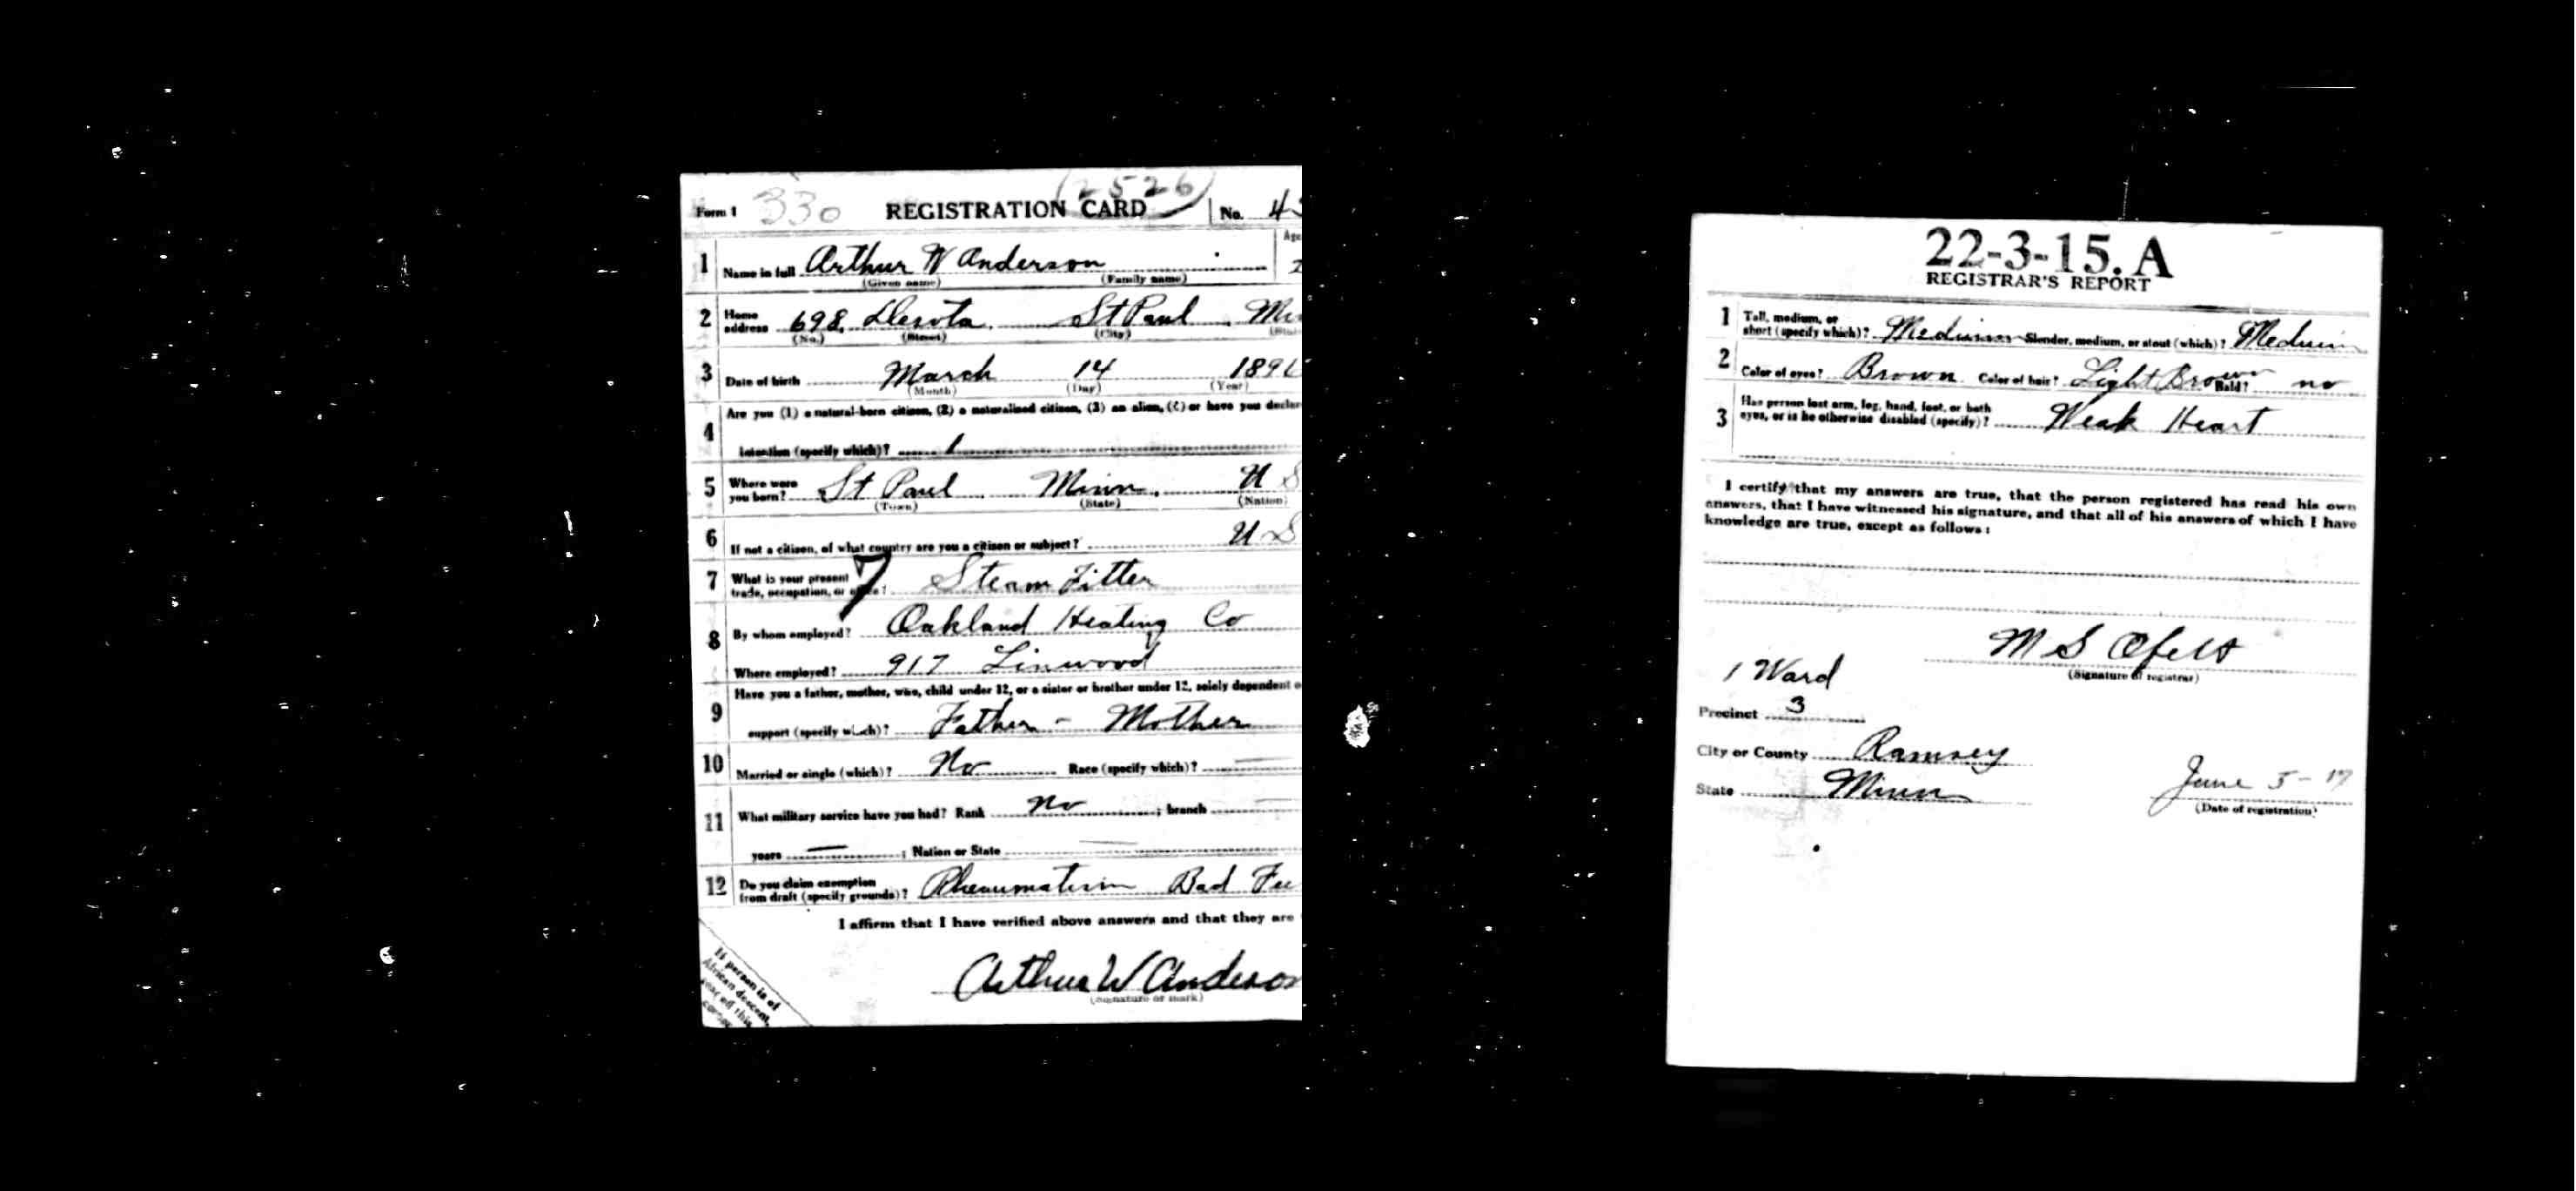 (2526)
Form 1 330 REGISTRATION CARD No.
1 Name in full Arthur W Anderson Age
(Given name) (Family name)
2 Home address 698 Desota St Paul
(No.) (Street) (City)
3 Date of birth March 14
(Month) (Day) (Year)
4 Are you (1) a natural-born citizen, (2) a naturalized citizen, (3) an alien, (4) or have you
intention (specify which)? 1
5 Where were you born? St Paul Minn. U S
(Town) (State) (Nation)
6 If not a citizen, of what country are you a citizen or subject? U S
7 What is your present trade, occupation, or office? 7 Steam Fitter
8 By whom employed? Oakland Heating Co
Where employed? 917 Linwood
9 Have you a father, mother, wife, child under 12, or a sister or brother under 12, solely dependent
support (specify which)? Father - Mother
10 Married or single (which)? No Race (specify which)? —
11 What military service have you had? Rank No ; branch —
years — ; Nation or State —
12 Do you claim exemption from draft (specify grounds)? Rheumatism Bad
I affirm that I have verified above answers and that they are
Arthur W Anderson
(Signature or mark)
If person is of
African descent,
tear off this
corner
22-3-15. A
REGISTRAR'S REPORT
1 Tall, medium, or short (specify which)? Medium Slender, medium, or stout (which)? Medium
2 Color of eyes? Brown Color of hair? Light Brown Bald? no
3 Has person lost arm, leg, hand, foot, or both eyes, or is he otherwise disabled (specify)? Weak Heart
I certify that my answers are true, that the person registered has read his own
answers, that I have witnessed his signature, and that all of his answers of which I have
knowledge are true, except as follows:
M S Ofelt
(Signature of registrar)
1 Ward
Precinct 3
City or County Ramsey
State Minn June 5-17
(Date of registration)